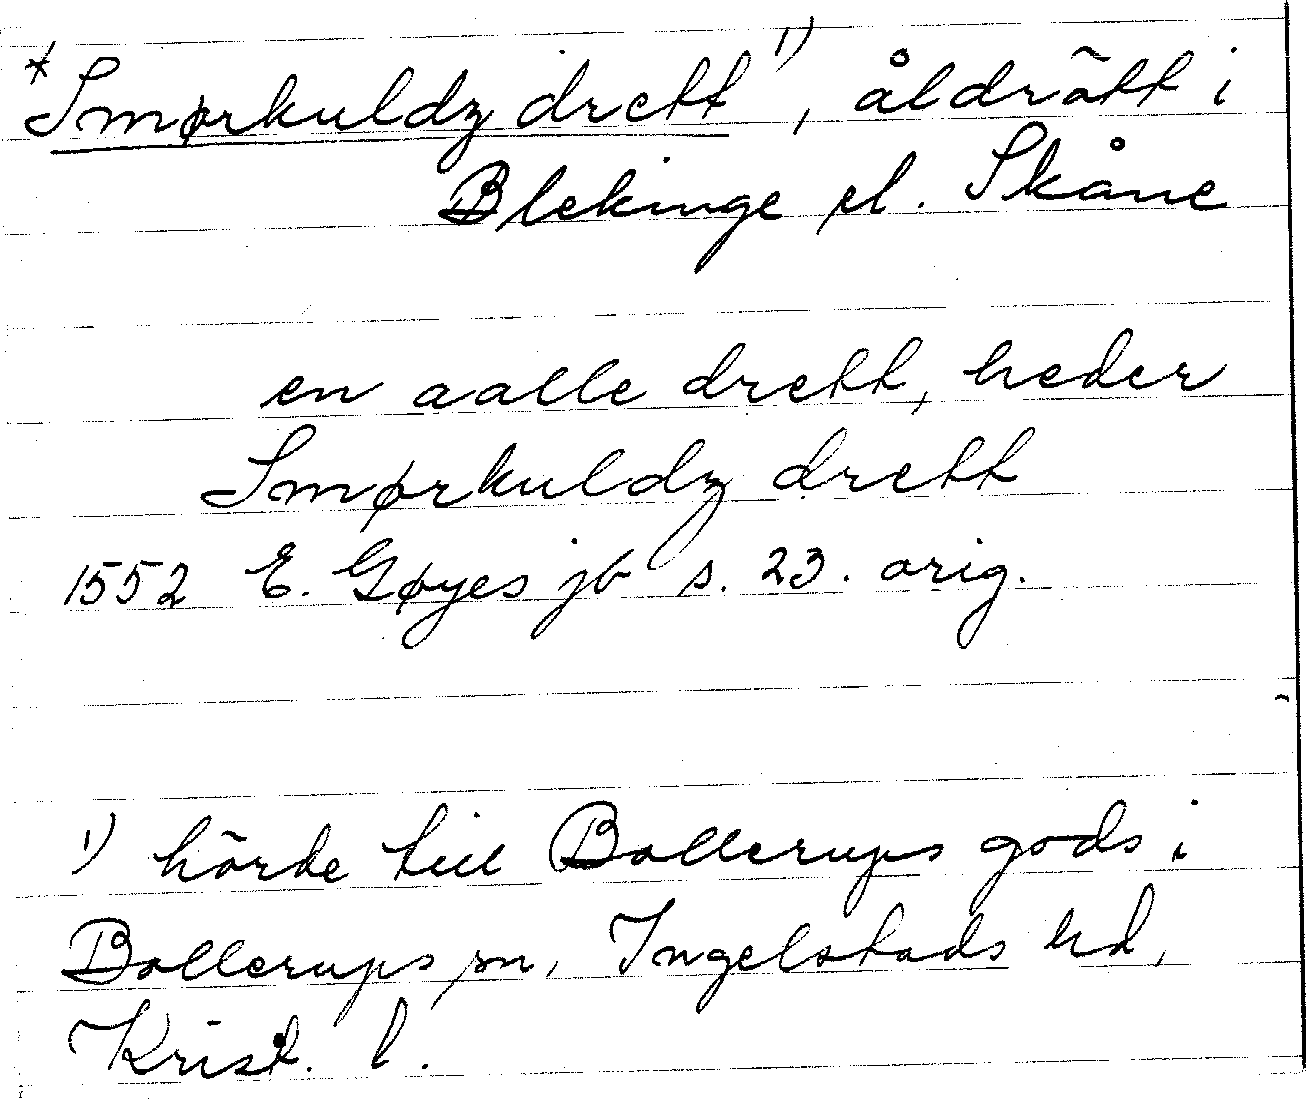 *Smørkuldz drett ¹), åldrätt i
Blekinge el. Skåne
en aalle drett, heder
Smørkuldz drett
1552 E. Gøyes jb s. 23. orig.
¹) hörde till Bollerups gods i
Bollerups sn, Ingelstads hd,
Krist. l.